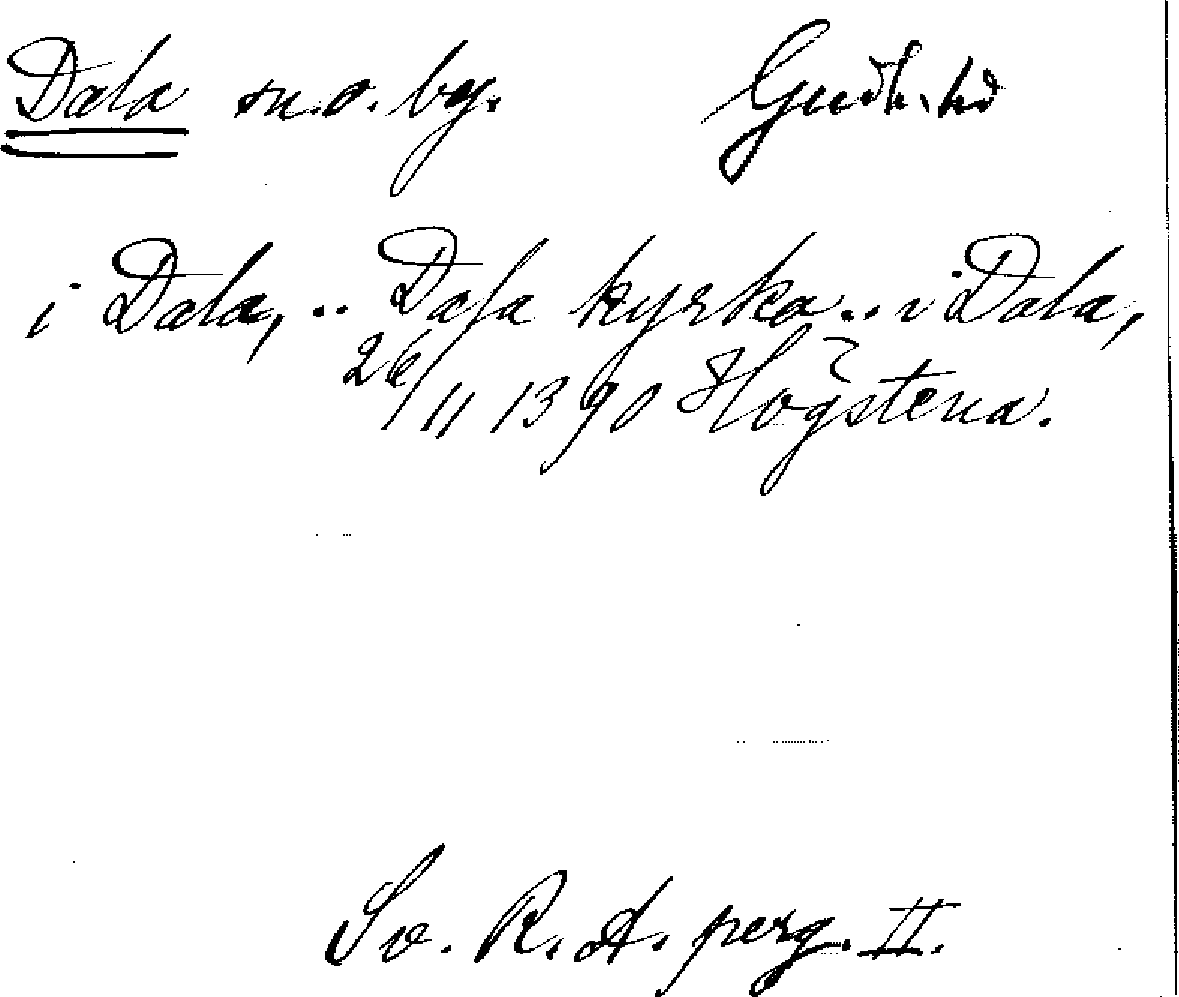 Dala sn. o. by. Gudh. hd
i Dala, .. Dala kyrka .. i Dala,
26/11 1390 Högstena.
Sv. R. A. perg. II.